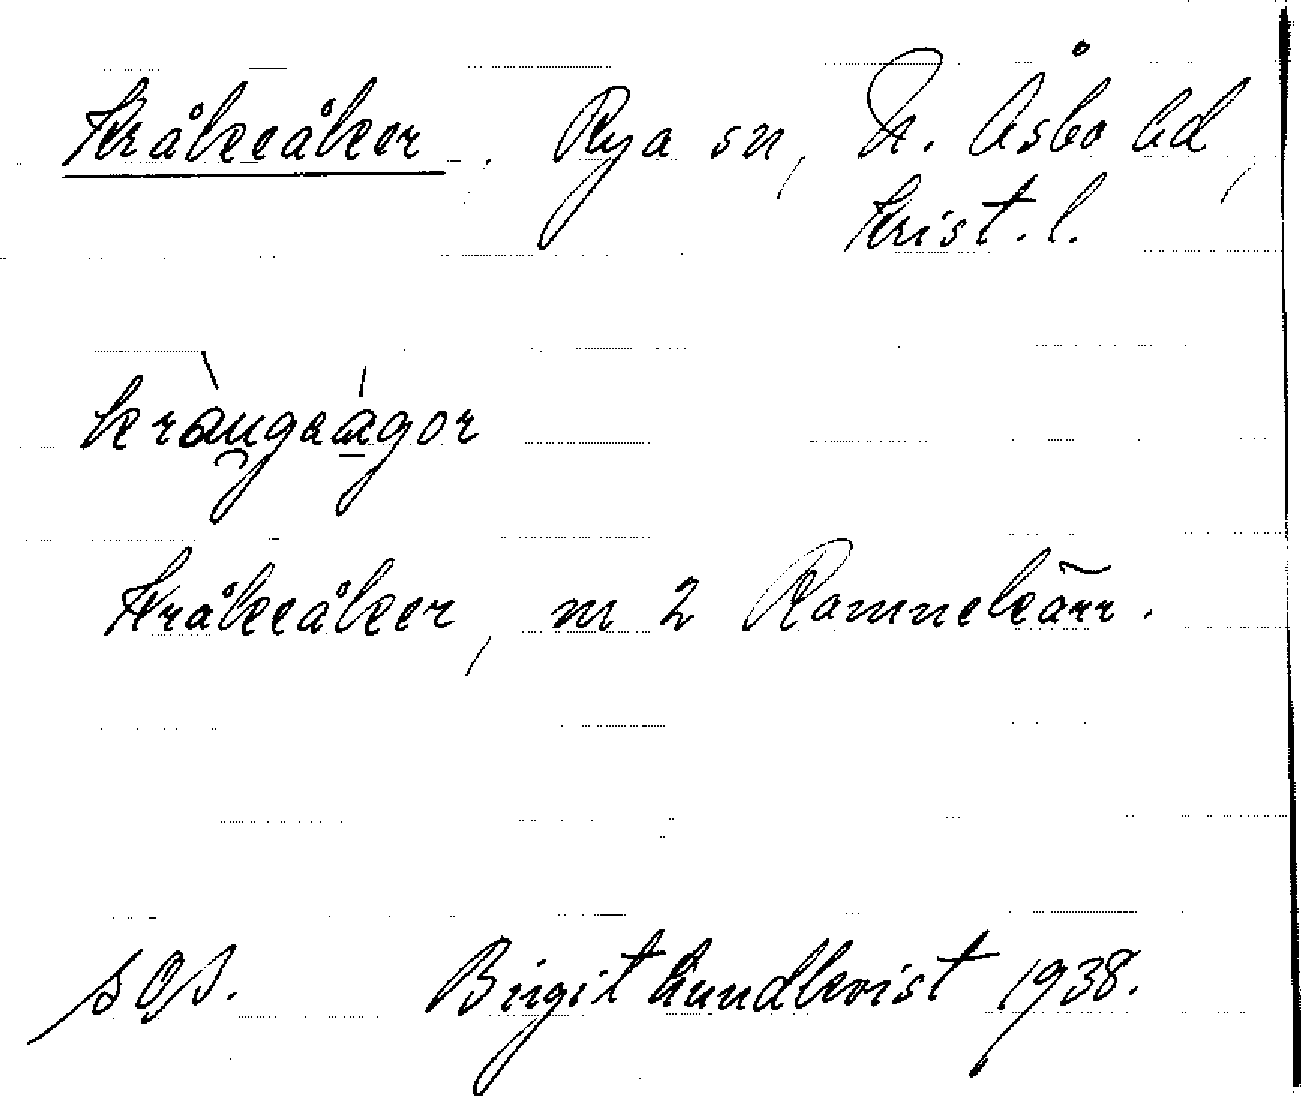 Kråkeåker. Rya sn, N. Åsbo hd,
Krist. l.
Kråkeåker, m 2 Ramnekärr.
SOS. Birgit Lundkvist 1938.